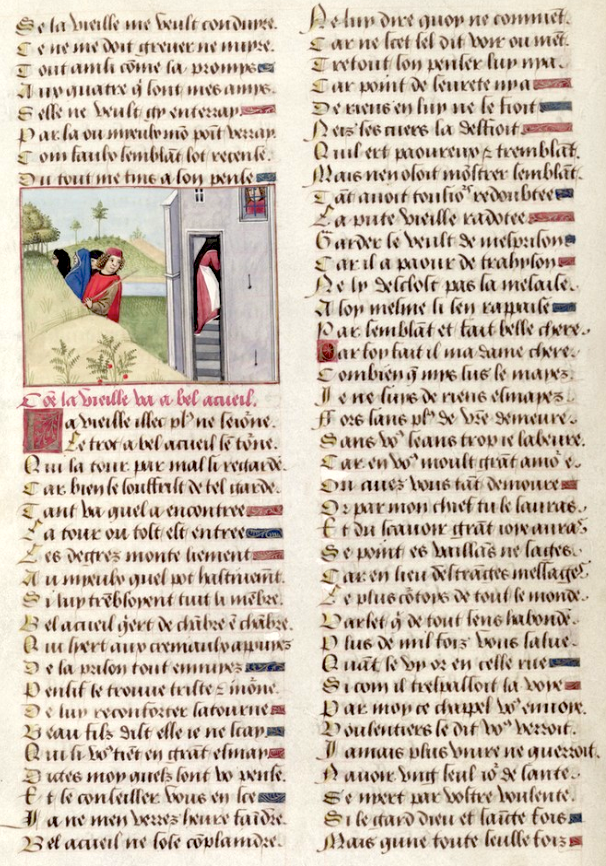 Se la vieille me veult conduire.
Ce ne me doit grever ne nuyre.
Tout ainsi cōme la promps
Aux quatre q̄ sont mes amps.
Selle ne veult gy enterray
Par la ou mpeulx nō pōnt verray
Com faulx semblāt lot recense.
Du tout me tins a son pense
Cōe la vieille va a bel acueil.
La vieille illec plꝰ ne seiōne.
Le trot a bel acueil sē tōne.
Qui la tour par mal si regarde.
Car bien se souffrist de tel garde.
Tant va quel a encontree
La tour ou tost est entree
Les degrez monte liement
Au mpeulx quel pot hastivemt.
Si luy trēbloyent tuit li mēbre.
Bel acueil q̄ert de chābre ē chābre.
Qui sert aux creneaulx appuyez
De la prison tout ennuyez
Pensif le trouve triste ⁊ mōne.
De luy reconforter satourne
Beau filz dist elle ie ne scay
Qui si voꝰ tiēt en grāt esmay
Dictes moy quelz sont vo pense.
Et se conseiller vous en sce
Ia ne men verrez heure faīdre.
Bel acueil ne sose cōplaindre.
Ne luy dire quoy ne commēt.
Car ne scet sel dit voir ou mēt.
Trestout son penser luy nya.
Car point de seurete nya
De riens en luy ne se fioit
Neiz ses cuers la deffioit
Quil ert paoureux ⁊ tremblāt.
Mais nen osoit mōstrer semblāt.
Tāt avoit tousioꝰ redoubtee
La pute vieille radotee
Garder se veult de mesprison
Car il a paour de trahyson
Ne ly desclost pas la mesaise.
A soy mesme si sen rappaise
Par semblāt et fait belle chere.
Par foy fait il ma dame chere.
Combien q̄ mys sus le mapez
Je ne suys de riens esmapez
Fors sans plꝰ de vr̄e demeure.
Sans voꝰ seans trop ie labeure.
Car en voꝰ moult grāt amoꝰ e.
Ou avez vous tāt demoure
Or par mon chief tu le sauras.
Et du scavoir grāt ioye auras
Se point es vaillās ne sages.
Car en lieu destrāges messages
Le plus cōtoys de tout le monde.
Varlet q̄ de tout sens habonde.
Plus de mil foiz vous salue.
Quāt le vy or en celle rue
Si com il trespassoit la voye
Par moy ce chappel voꝰ envoye.
Voulentiers se dit voꝰ verroit.
Jamais plus vivre ne querroit.
Navoir vng seul ioꝰ de sante.
Se nyert par vostre voulente.
Si le gard dieu et saīte fois
Mais qune toute seulle foiz